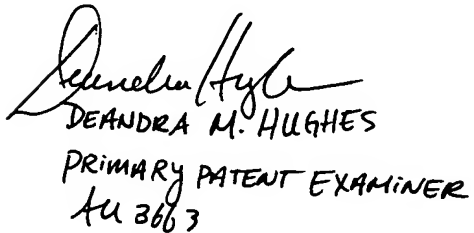 Deandra Hughes
DEANDRA M. HUGHES
PRIMARY PATENT EXAMINER
AU 3663